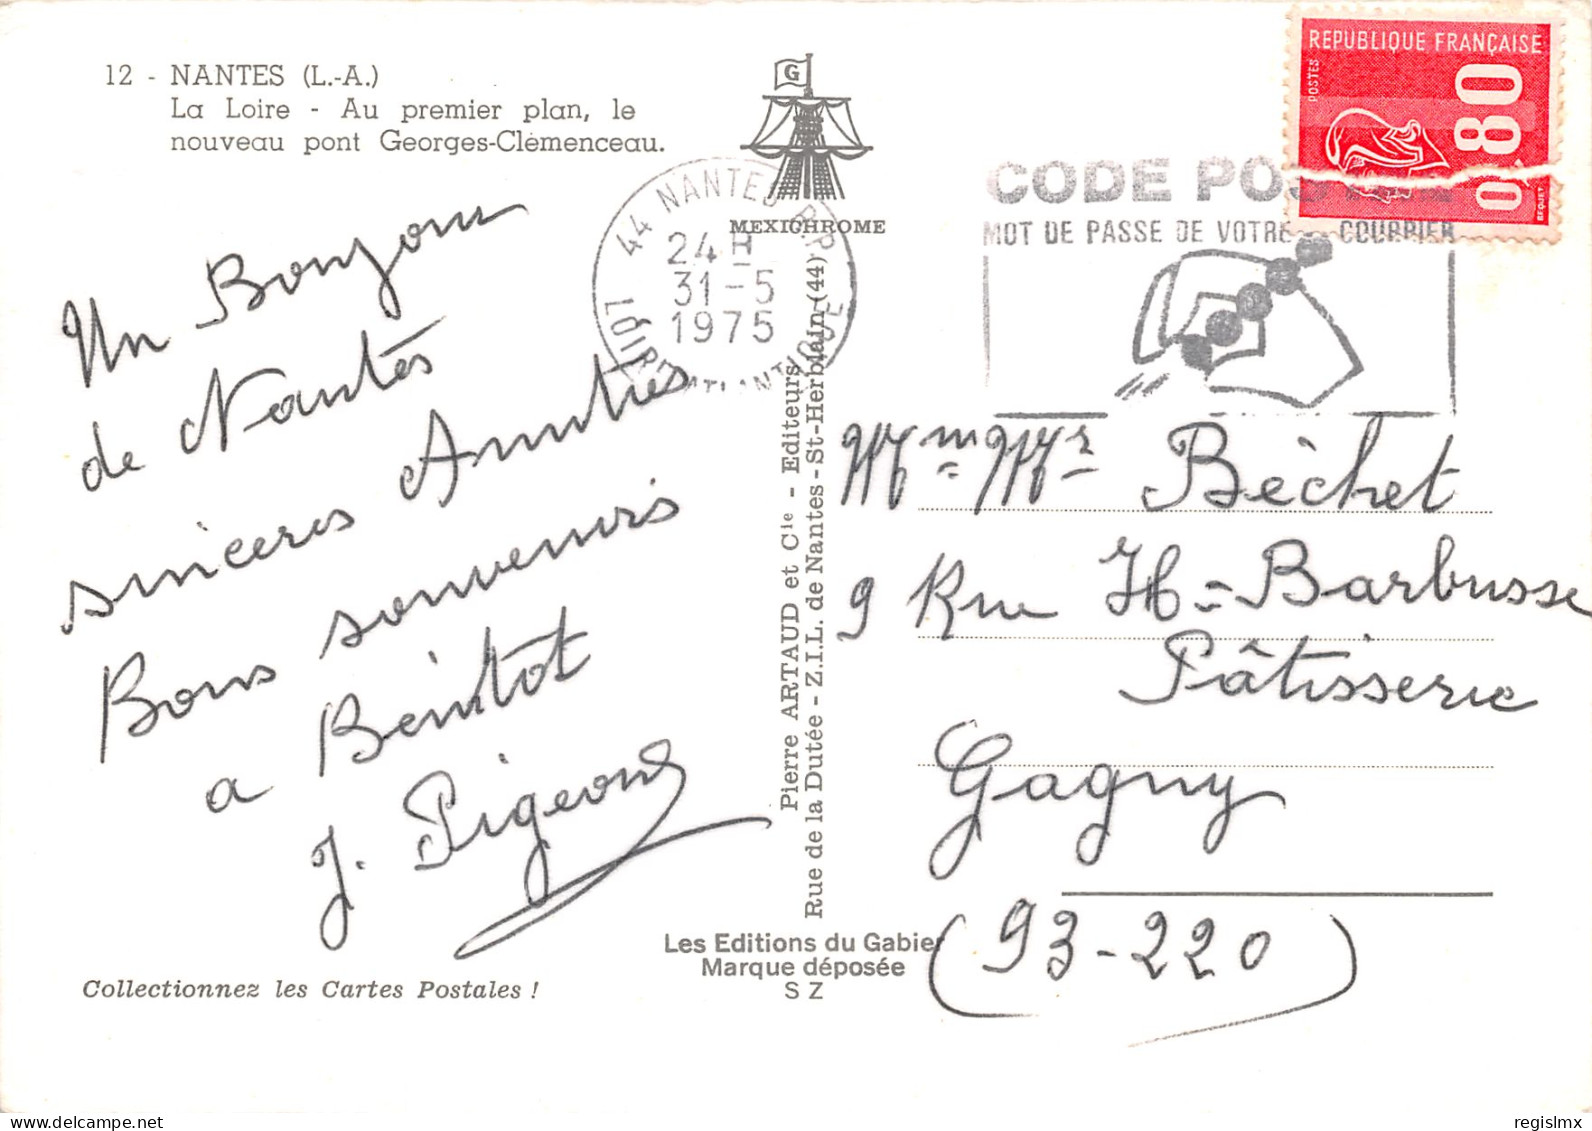 12 - NANTES (L.-A.)
La Loire - Au premier plan, le
nouveau pont Georges-Clémenceau.
G
MEXICHROME
44 NANTES R.P.
24 H
31-5
1975
LOIRE ATLANTIQUE
CODE POSTAL
MOT DE PASSE DE VOTRE COURRIER
REPUBLIQUE FRANÇAISE
POSTES
0,80
BEQUET
Un Bonjour
de Nantes
sinceres Amitiés
Bons souvenirs
a Bentot
J. Pigeon
Pierre ARTAUD et Cie - Editeurs
Rue de la Dutée - Z.I.L. de Nantes - St-Herblain (44)
Mme Mr Bèchet
9 Rue H=Barbusse
Pâtisserie
Gagny
(93-220)
Les Editions du Gabier
Marque déposée
S Z
Collectionnez les Cartes Postales !
www.delcampe.net
regislmx